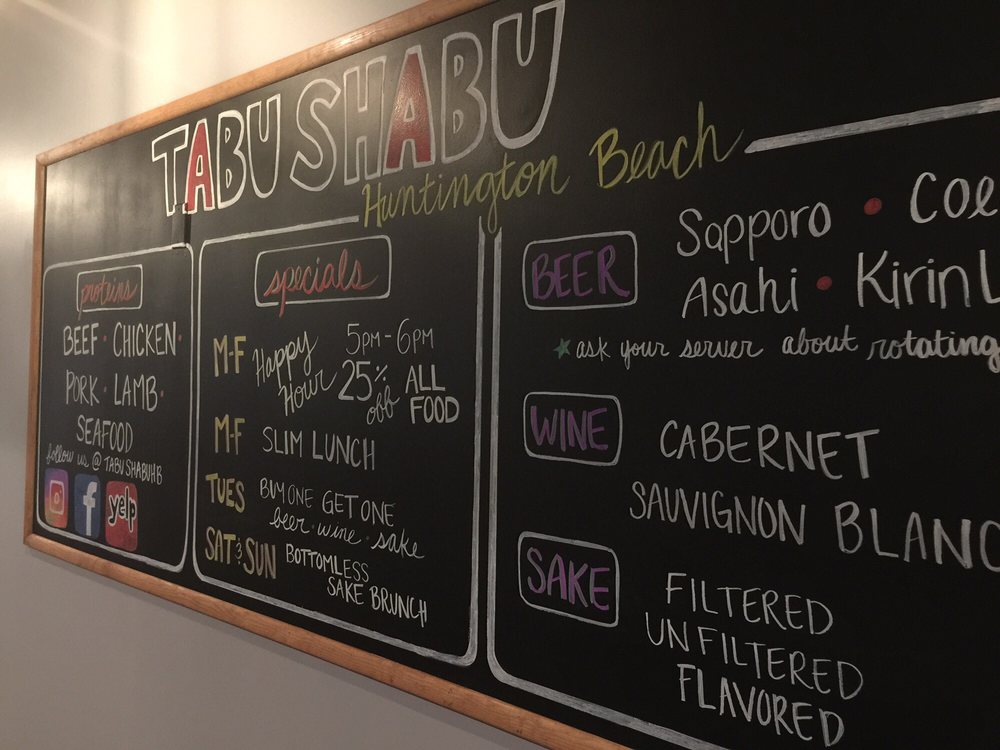 TABU SHABU
Huntington Beach
proteins
BEEF • CHICKEN •
PORK • LAMB •
SEAFOOD
follow us @ TABUSHABUHB
yelp
specials
M-F Happy Hour 5PM - 6PM 25% off ALL FOOD
M-F SLIM LUNCH
TUES BUY ONE GET ONE
beer • wine • sake
SAT & SUN BOTTOMLESS
SAKE BRUNCH
BEER
Sapporo •
Asahi • Kirin
ask your server about rotating
WINE
CABERNET
SAUVIGNON BLANC
SAKE
FILTERED
UNFILTERED
FLAVORED